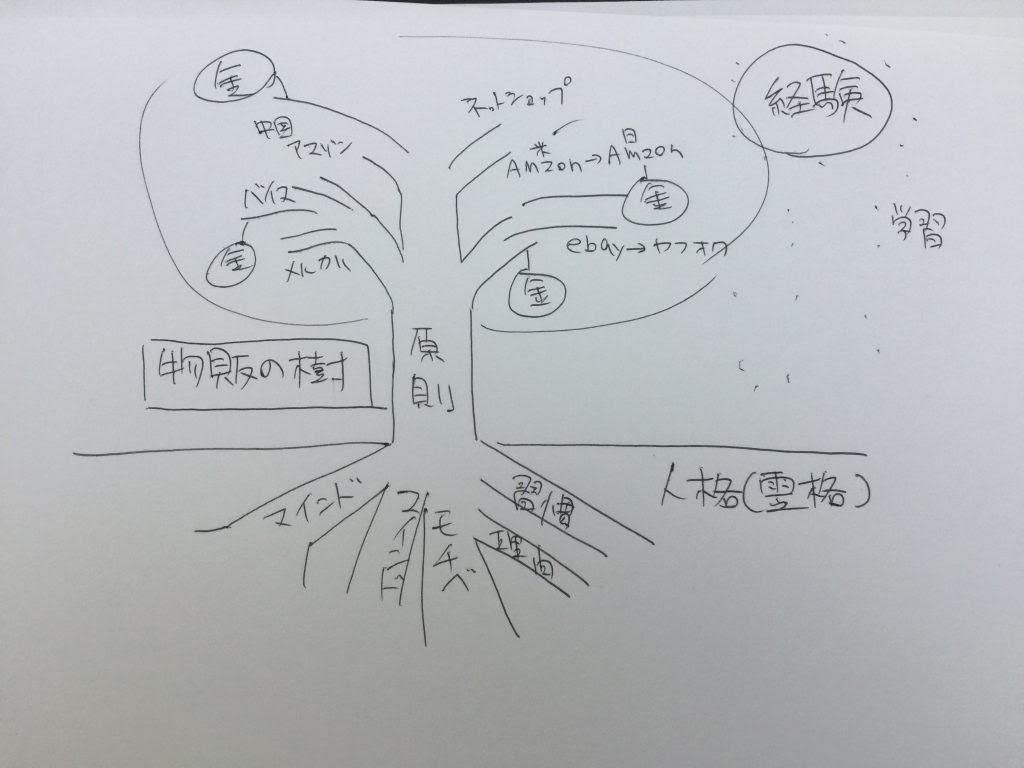 金
ネットショップ
経験
中国
アマゾン
米 日
Amzon→Amzon
バイヌ
金
学習
ebay→ヤフオク
金
メルカリ
金
原則
物販の樹
人格(霊格)
マインド
マインド
モチベ
習慣
理由